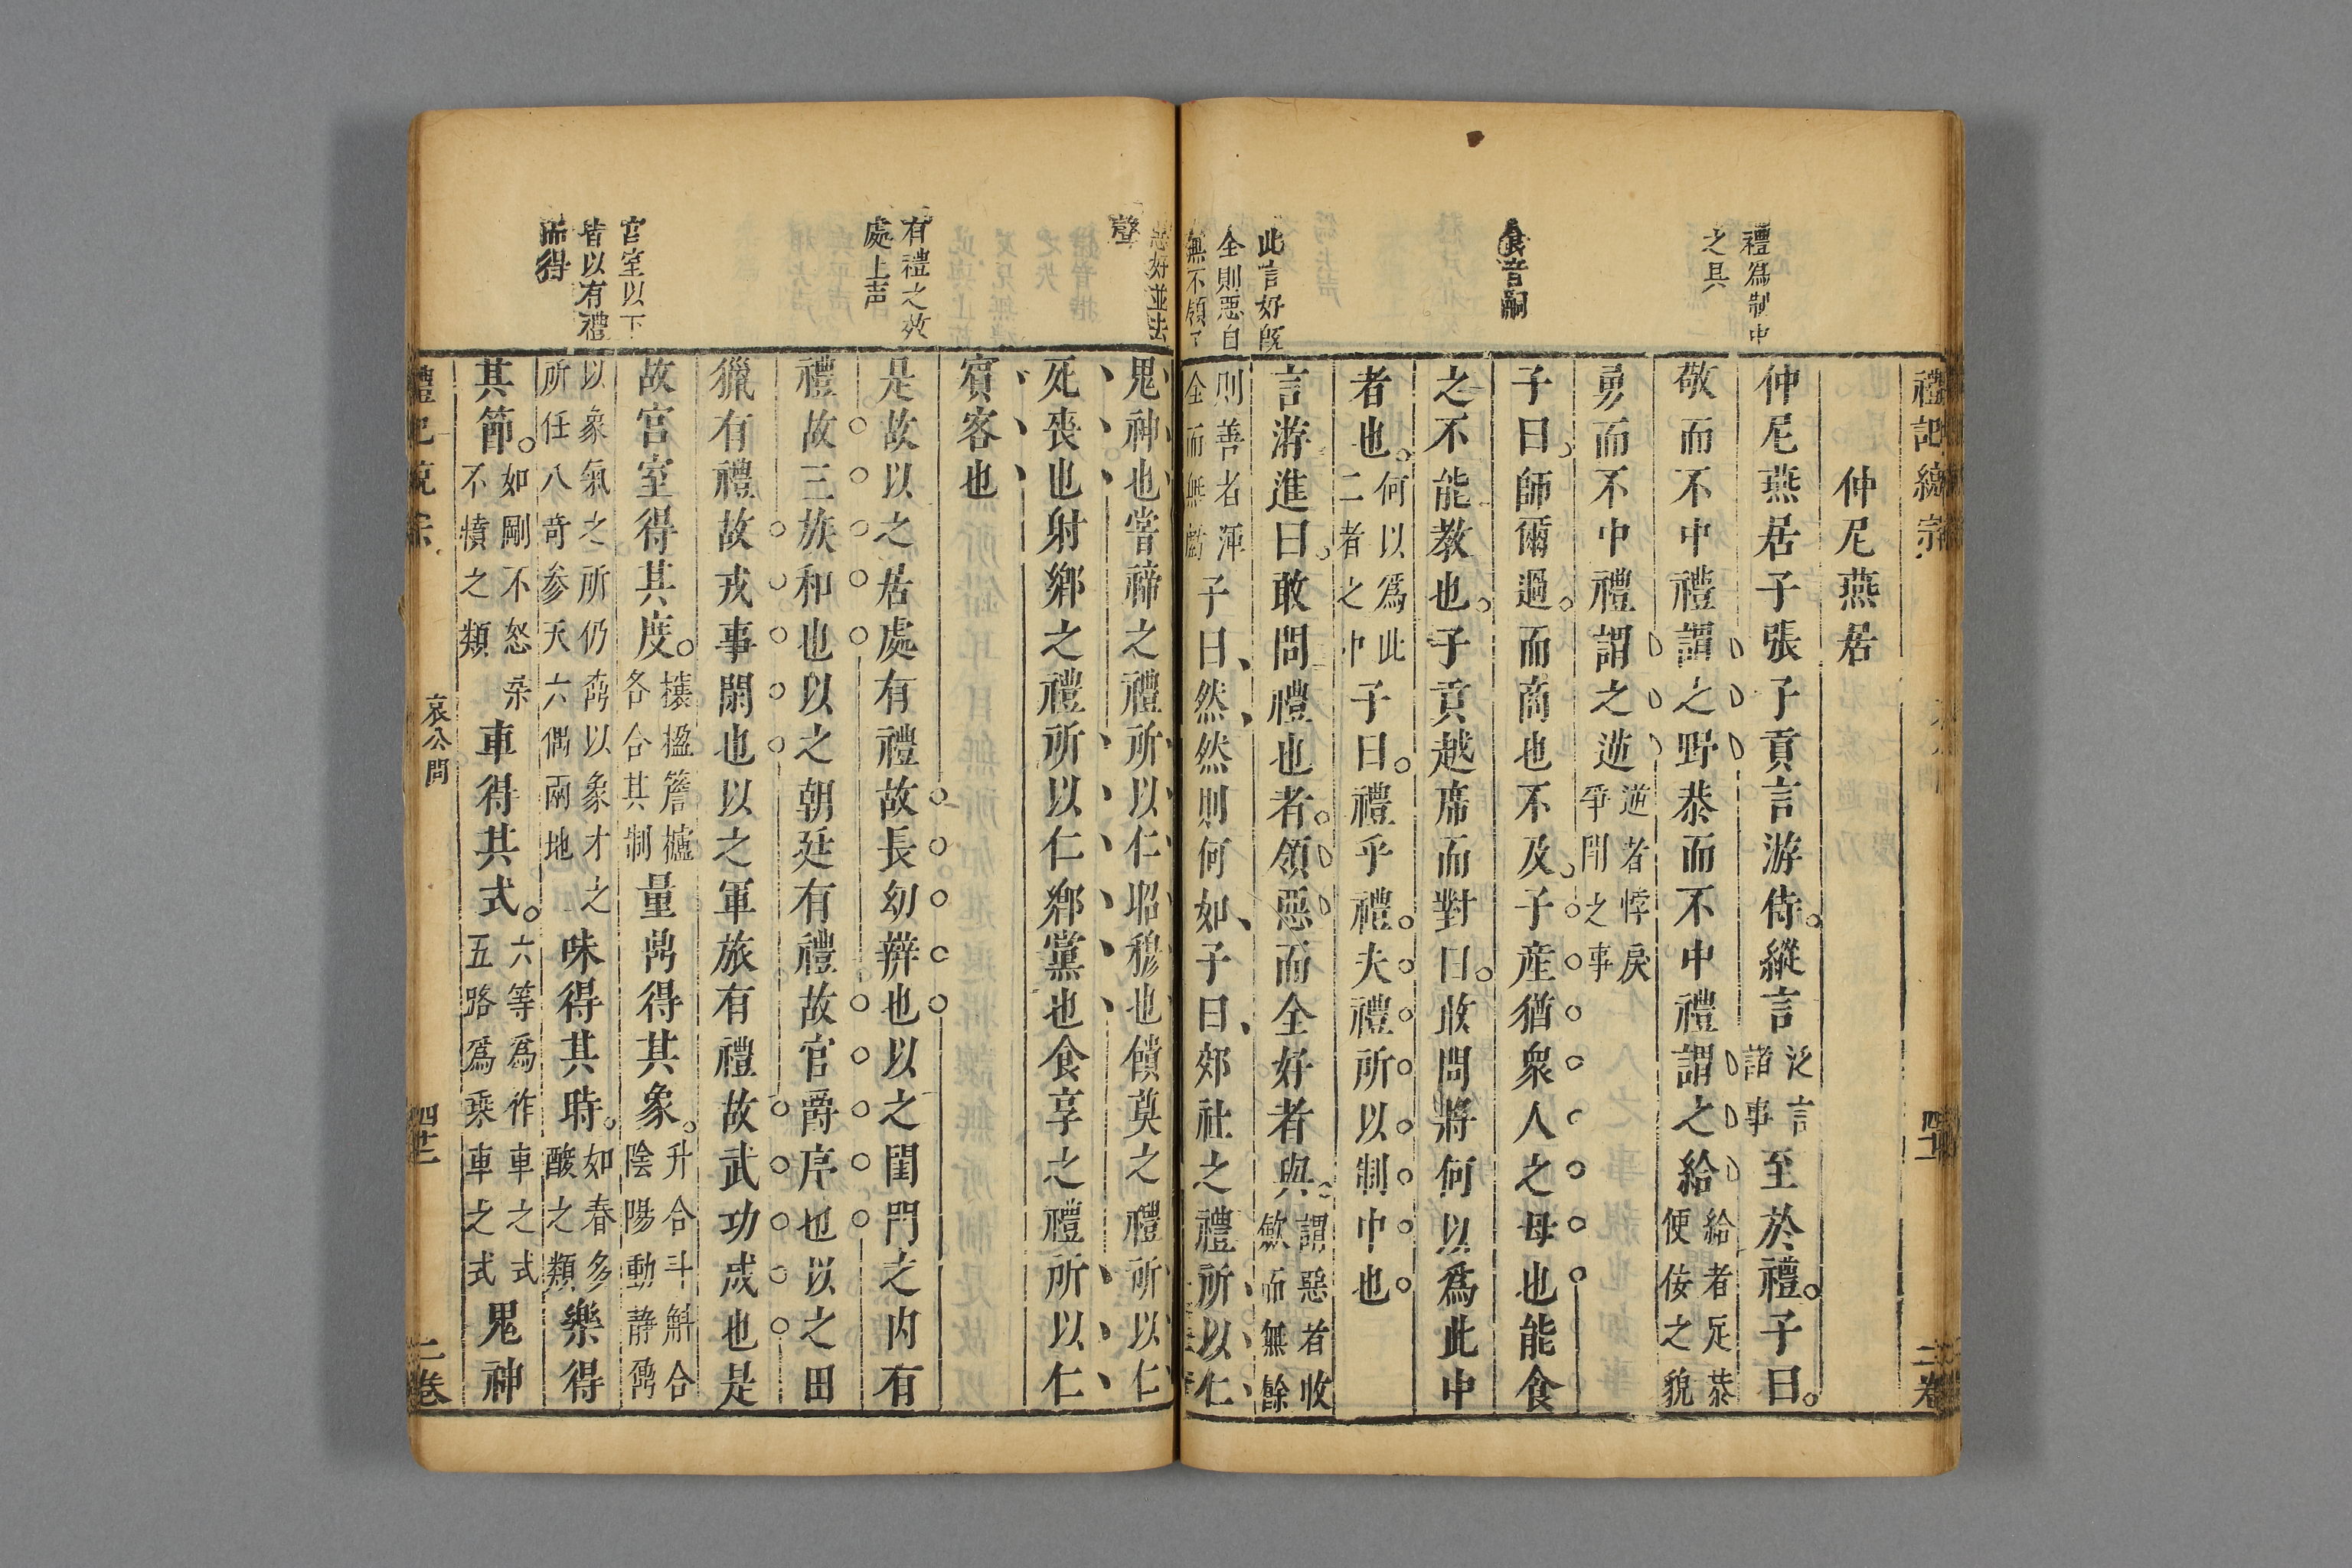 禮記纘宗
仲尼燕居
仲尼燕居子張子貢言游侍縱言泛言諸事至於禮子曰
敬而不中禮謂之野恭而不中禮謂之給給者足恭便佞之貌
勇而不中禮謂之逆逆者悖戾爭鬪之事
子曰師爾過而商也不及子產猶衆人之母也能食
之不能教也子貢越席而對曰敢問將何以爲此中
者也何以爲此二者之中子曰禮乎禮夫禮所以制中也
言游進曰敢問禮也者領惡而全好者與謂惡者收斂而無餘
則善者渾全而無虧子曰然然則何如子曰郊社之禮所以仁
禮爲制中
之具
食音嗣
此言好既
全則惡自
無不領了
鬼神也嘗禘之禮所以仁昭穆也饋奠之禮所以仁
死喪也射鄉之禮所以仁鄉黨也食享之禮所以仁
賓客也
是故以之居處有禮故長幼辨也以之閨門之內有
禮故三族和也以之朝廷有禮故官爵序也以之田
獵有禮故戎事閑也以之軍旅有禮故武功成也是
故宮室得其度攘楹簷櫨各合其制量鼎得其象升合斗斛合陰陽動靜鼎
以象氣之所仍鼒以象才之所任八奇參天六偶兩地味得其時如春多酸之類樂得
其節如剛不怒柔不憤之類車得其式六等爲作車之式五路爲乘車之式鬼神
惡好並去
聲
有禮之效
處上声
宮室以下
皆以有禮
而得
哀公問
二卷